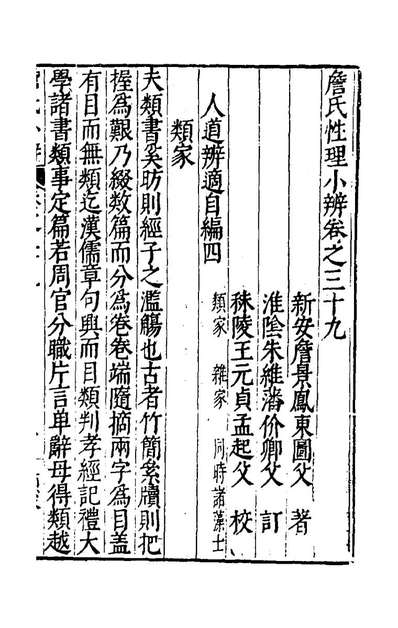 詹氏性理小辨卷之三十九
新安詹景鳳東圖父 著
淮陰朱維藩价卿父 訂
秣陵王元貞孟起父 校
人道辨適自編四
類家 雜家 同時諸藻士
類家
夫類書奚昉則經子之濫觴也古者竹簡桼牘則把
握爲艱乃綴數篇而分爲卷卷端隨摘兩字爲目蓋
有目而無類迄漢儒章句興而目類判孝經記禮大
學諸書類事定篇若周官分職片言单辭毋得類越